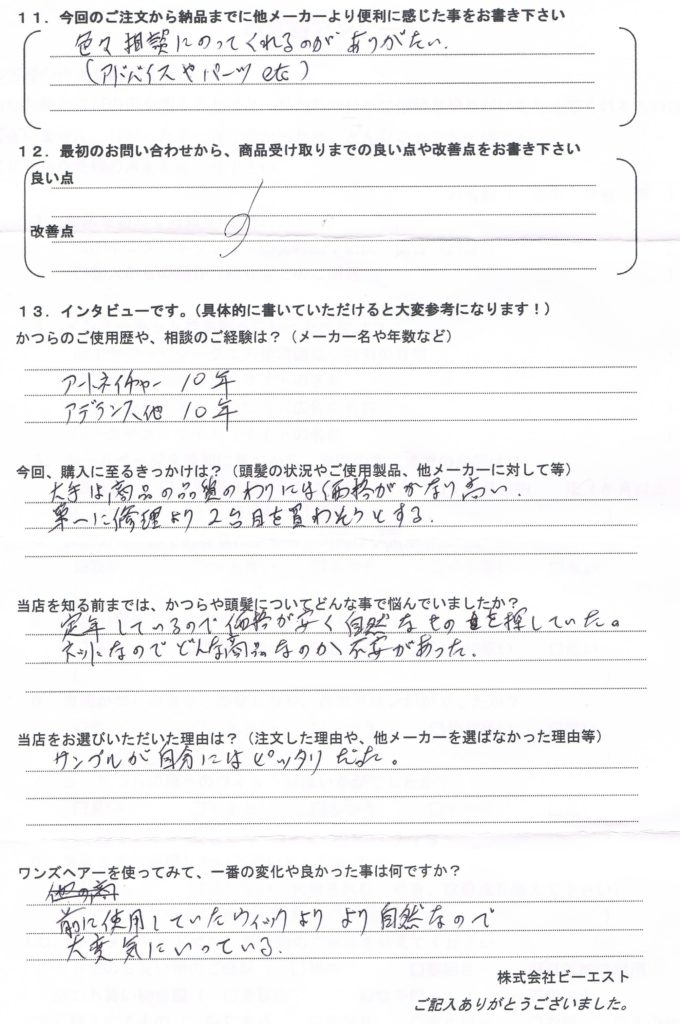 １１．今回のご注文から納品までに他メーカーより便利に感じた事をお書き下さい
色々相談にのってくれるのがありがたい.
（アドバイスやパーツ etc）
１２．最初のお問い合わせから、商品受け取りまでの良い点や改善点をお書き下さい
良い点
改善点
１３．インタビューです。（具体的に書いていただけると大変参考になります！）
かつらのご使用歴や、相談のご経験は？（メーカー名や年数など）
アートネイチャー 10年
アデランス他 10年
今回、購入に至るきっかけは？（頭髪の状況やご使用製品、他メーカーに対して等）
大手は商品の品質のわりには価格がかなり高い.
第一に修理より2台目を買わそうとする.
当店を知る前までは、かつらや頭髪についてどんな事で悩んでいましたか？
定年しているので価格が安く自然なもの を探していた。
ネットになのでどんな商品なのか不安があった.
当店をお選びいただいた理由は？（注文した理由や、他メーカーを選ばなかった理由等）
サンプルが自分にはピッタリだった。
ワンズヘアーを使ってみて、一番の変化や良かった事は何ですか？
他の商
前に使用していたウィックより より自然なので
大変気にいっている.
株式会社ビーエスト
ご記入ありがとうございました。